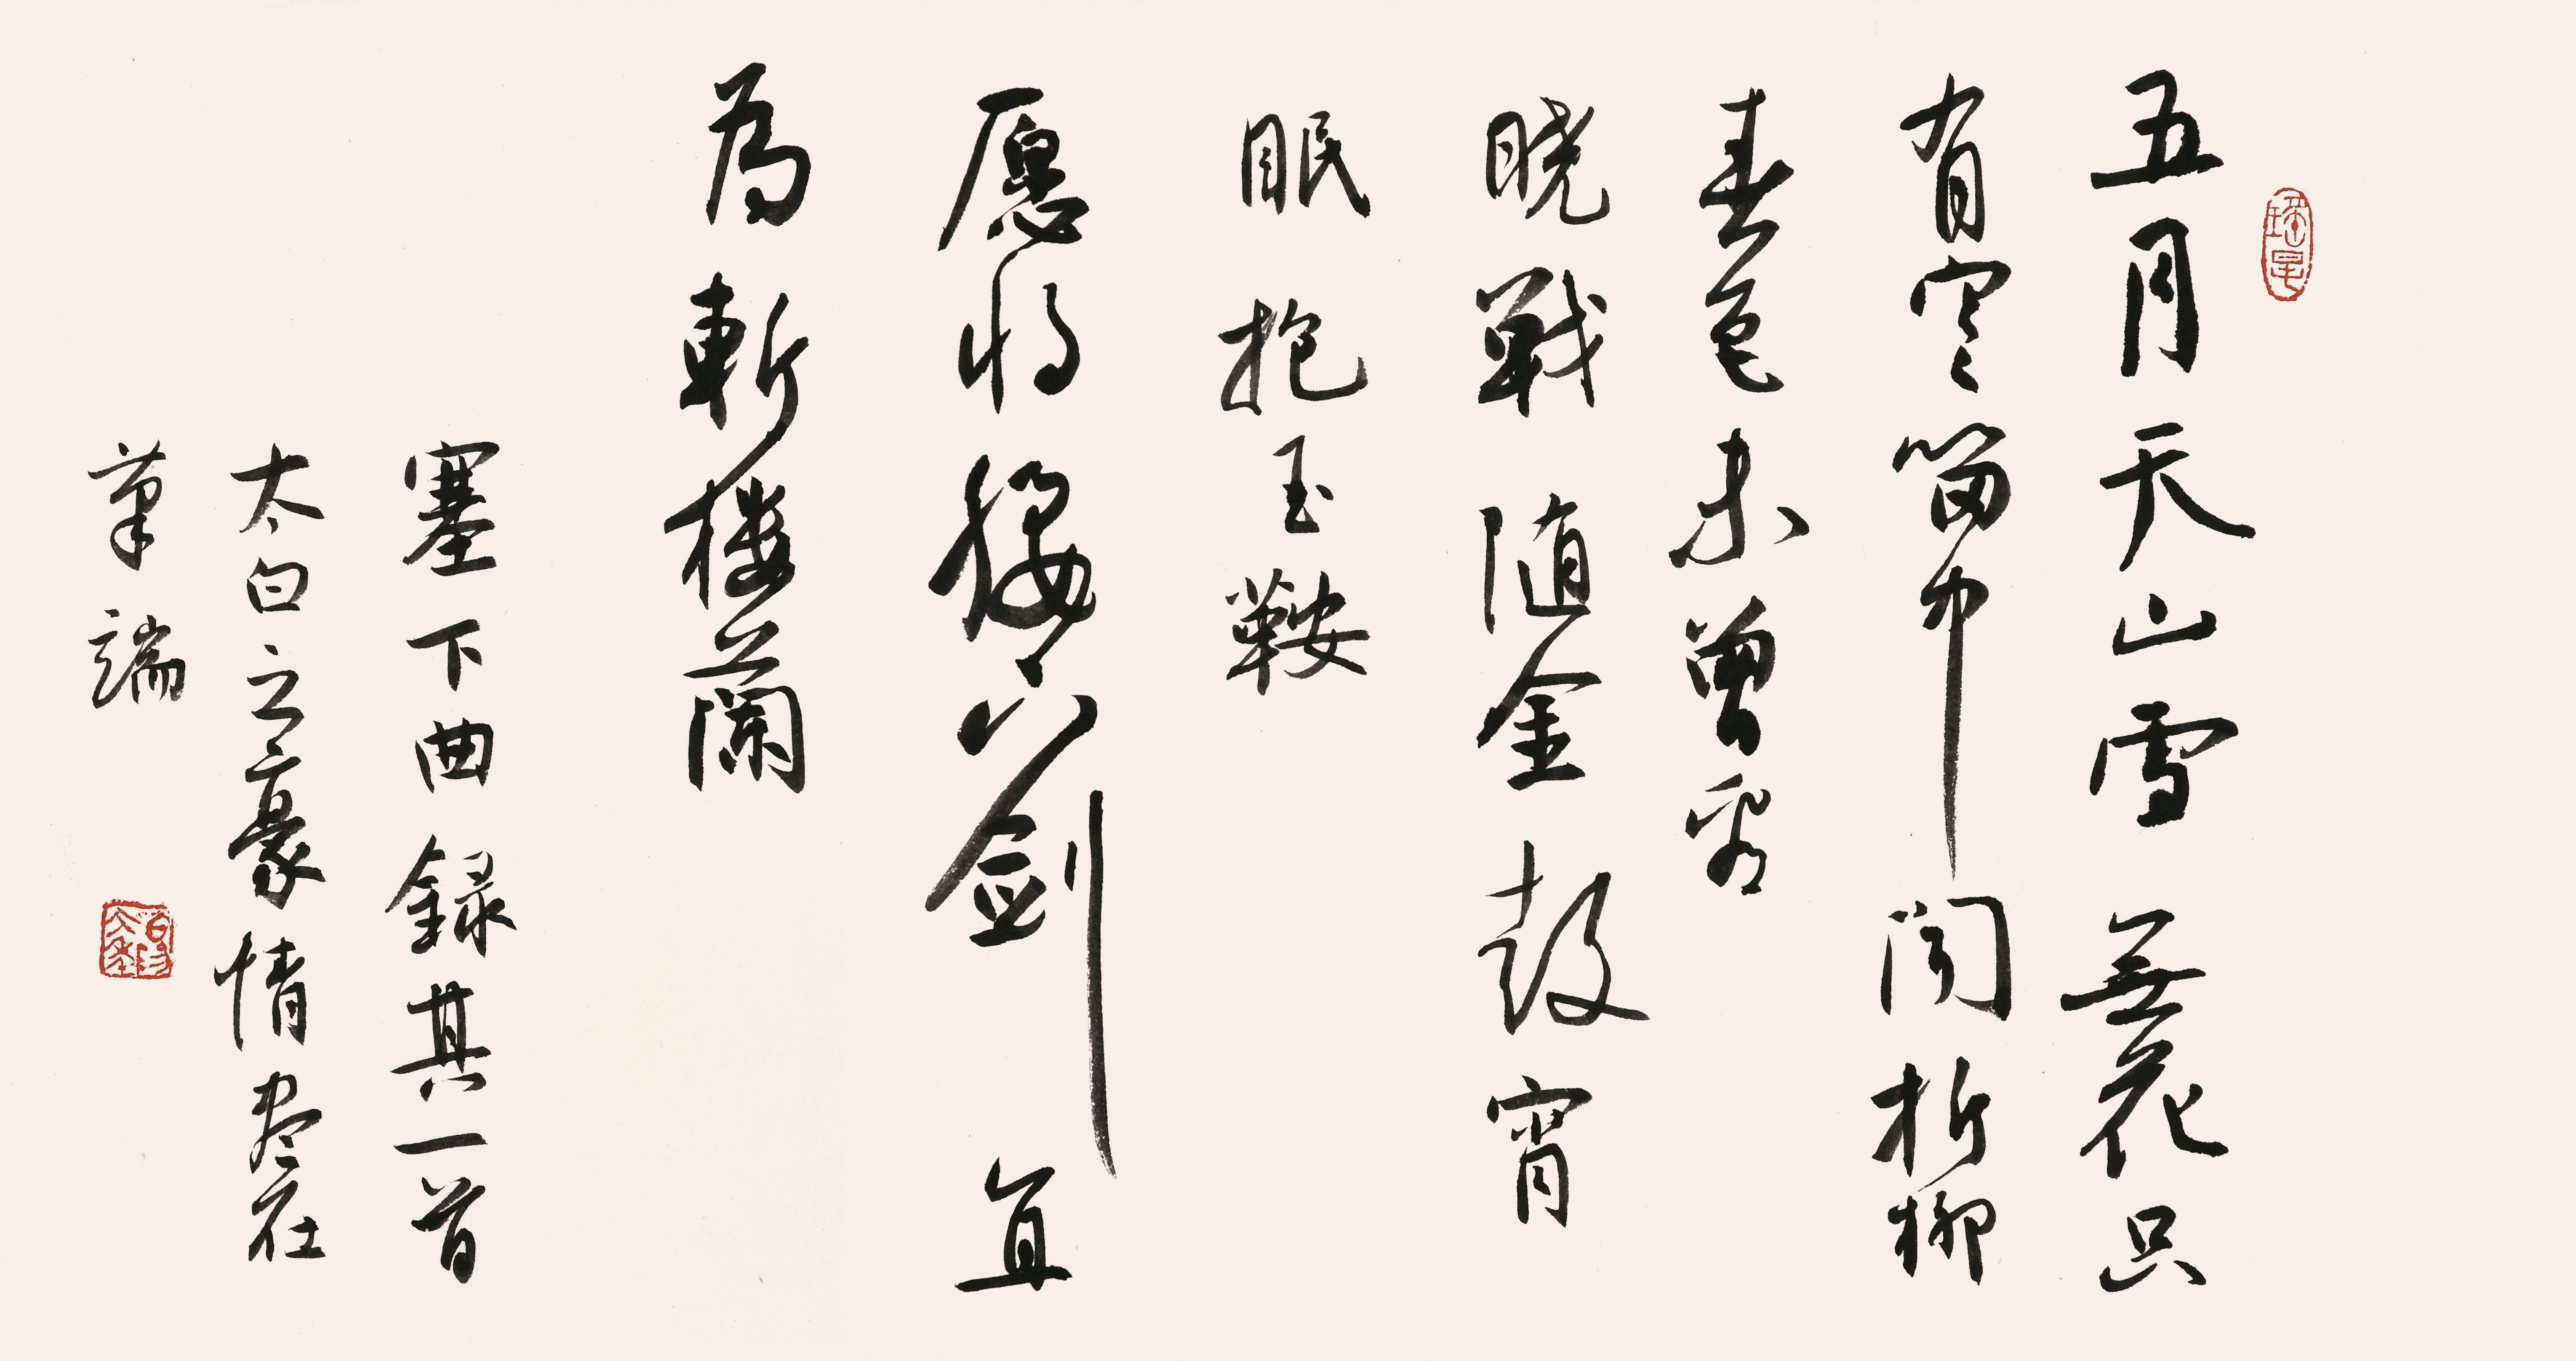 五月天山雪無花只
有寒笛中聞折柳
春色未曾看
曉戰随金鼓宵
眠抱玉鞍
愿将腰下劍直
為斬楼蘭
塞下曲録其一首
太白之豪情尽在
筆端